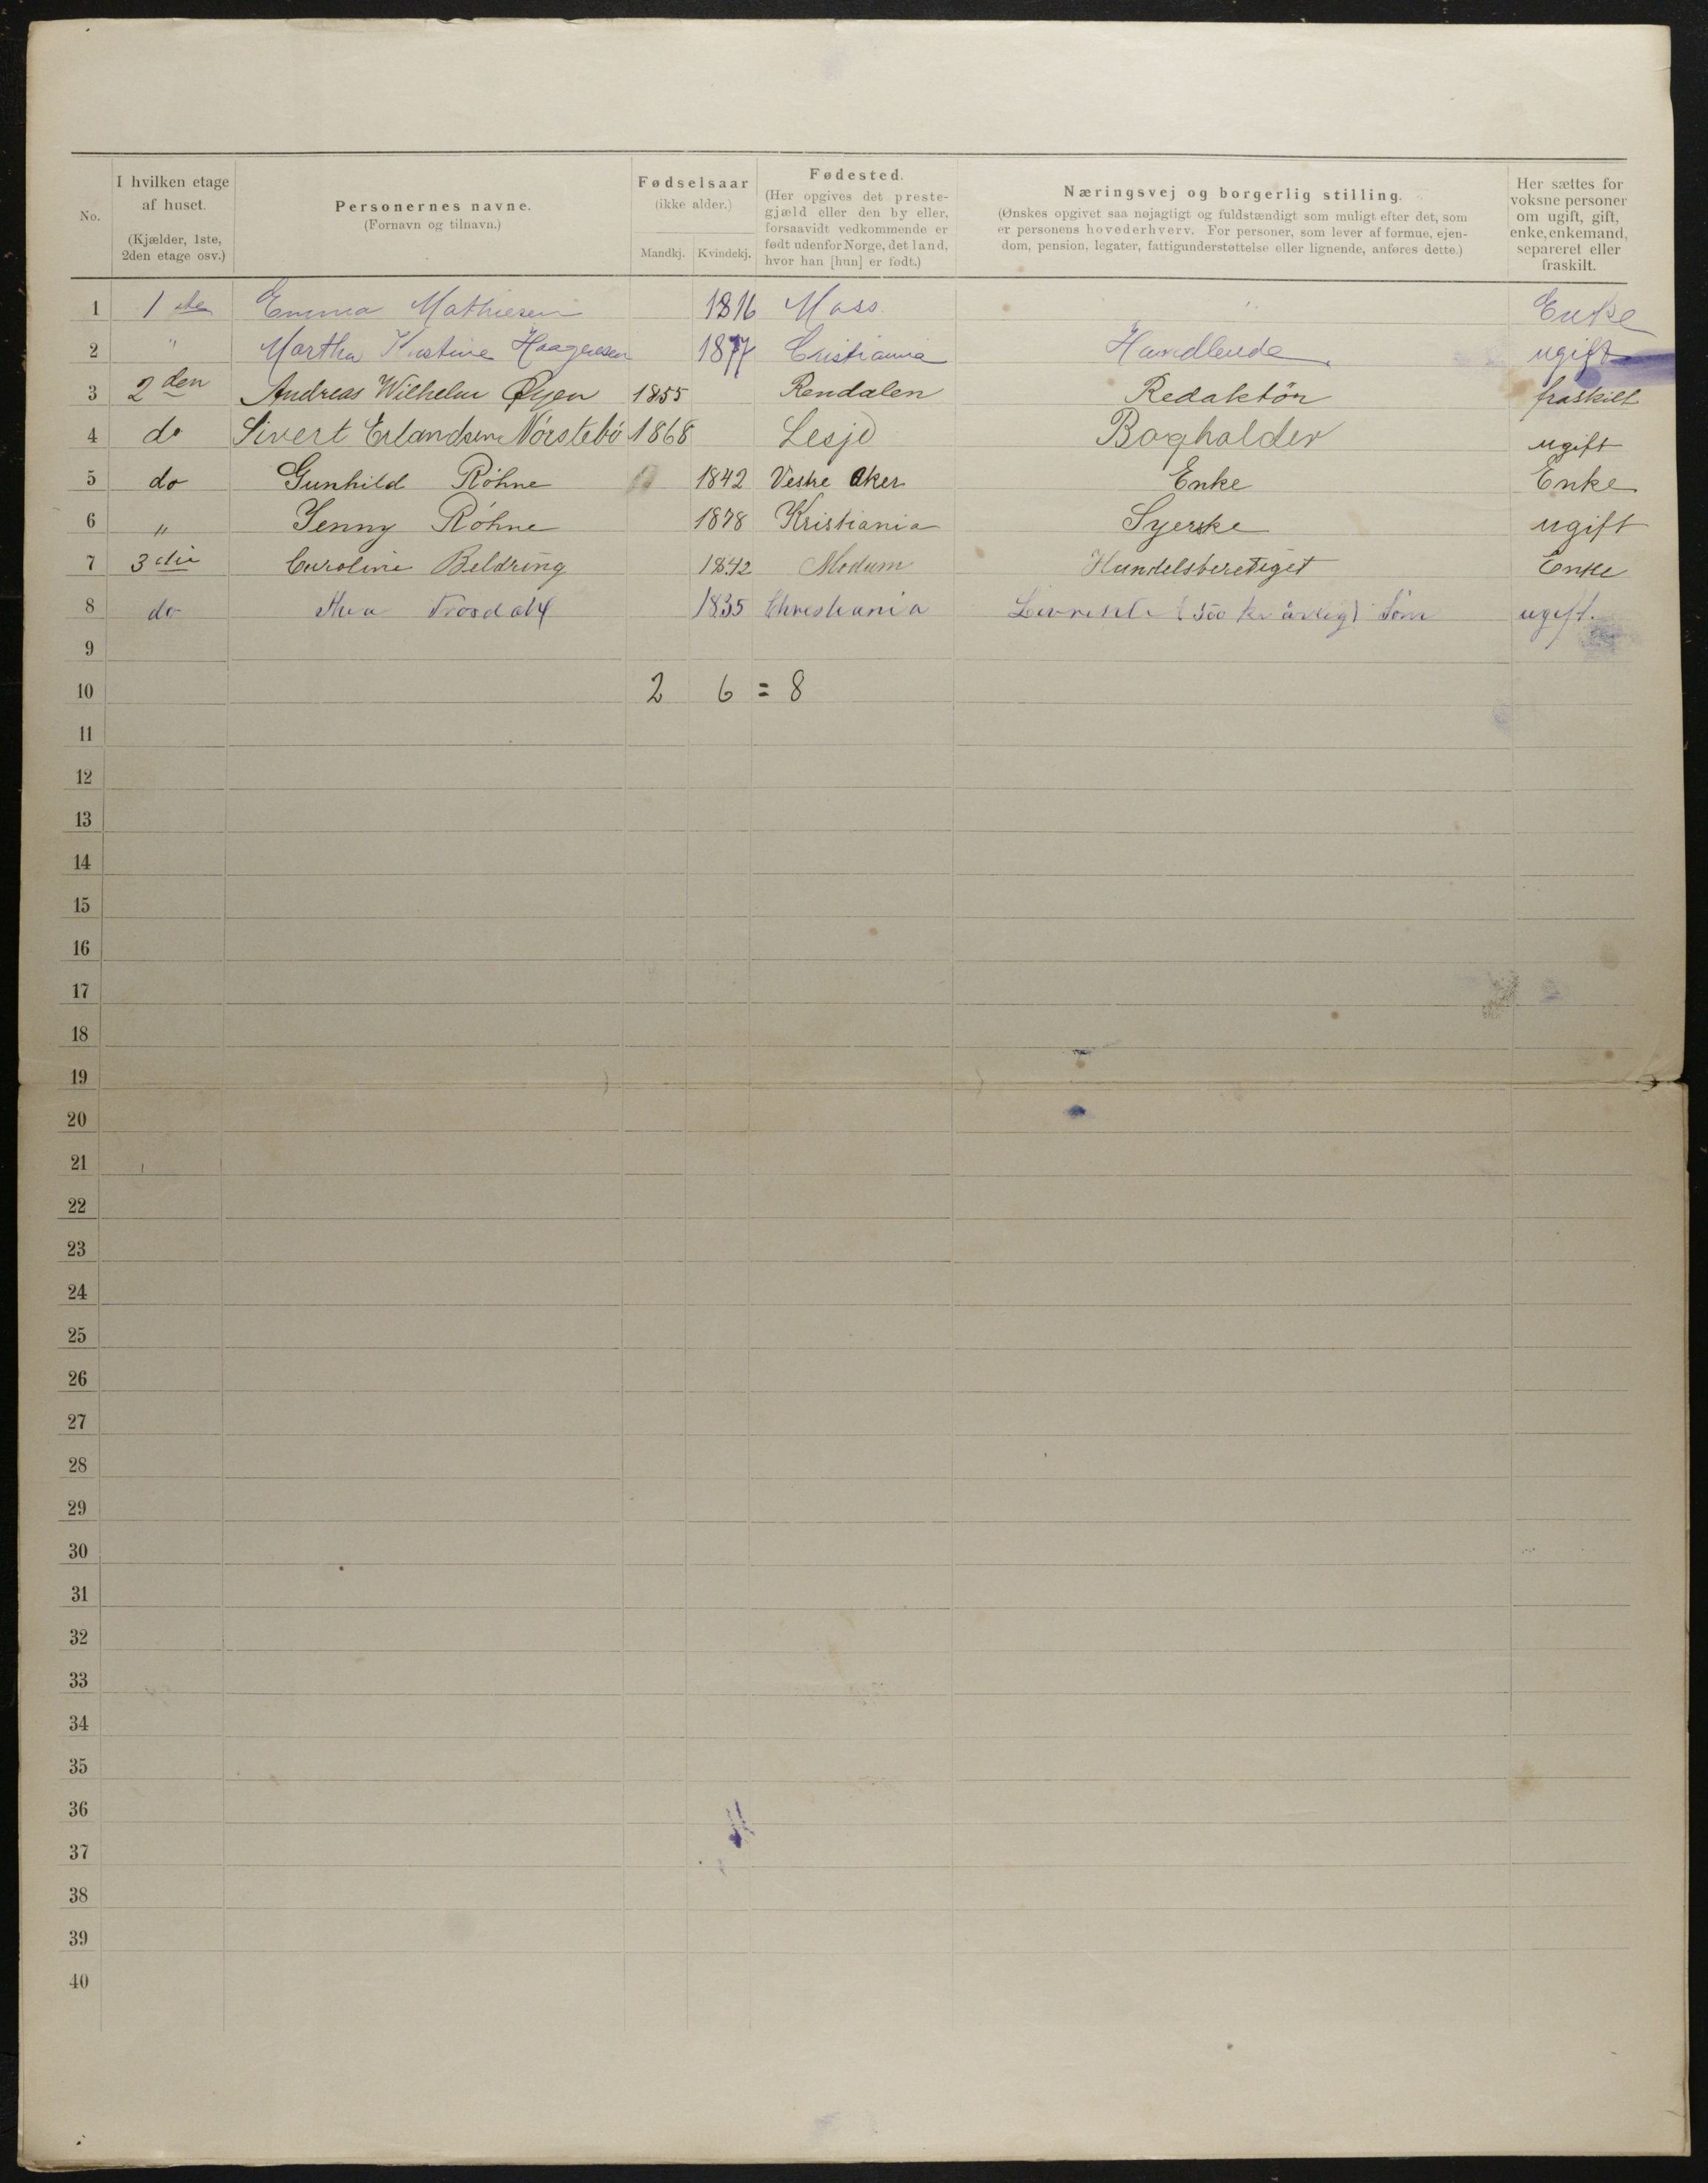 No.
I hvilken etage af huset. (Kjælder, 1ste, 2den etage osv.)
Personernes navne. (Fornavn og tilnavn.)
Fødselsaar (ikke alder.) Mandkj. Kvindekj.
Fødested. (Her opgives det prestegjæld eller den by eller, forsaavidt vedkommende er født udenfor Norge, det land, hvor han [hun] er født.)
Næringsvej og borgerlig stilling. (Ønskes opgivet saa nøjagtigt og fuldstændigt som muligt efter det, som er personens hovederhverv. For personer, som lever af formue, ejendom, pension, legater, fattigunderstøttelse eller lignende, anføres dette.)
Her sættes for voksne personer om ugift, gift, enke, enkemand, separeret eller fraskilt.
1 1ste Emma Mathiesen 1816 Moss Enke
2 " Martha Kristine Haagensen 1877 Cristiania Handlende ugift
3 2den Andreas Wilhelm Øyen 1855 Rendalen Redaktör fraskilt
4 do Sivert Erlandsen Nörstebö 1868 Lesje Bogholder ugift
5 do Gunhild Röhne 1842 Vestre Aker Enke Enke
6 " Jenny Röhne 1878 Kristiania Syerske ugift
7 3die Caroline Beldring 1842 Modum Handelsberetiget Enke
8 do 1835 Christiania Livrente (300 kr årlig) ugift.
9
10 2 6 = 8
11
12
13
14
15
16
17
18
19
20
21
22
23
24
25
26
27
28
29
30
31
32
33
34
35
36
37
38
39
40